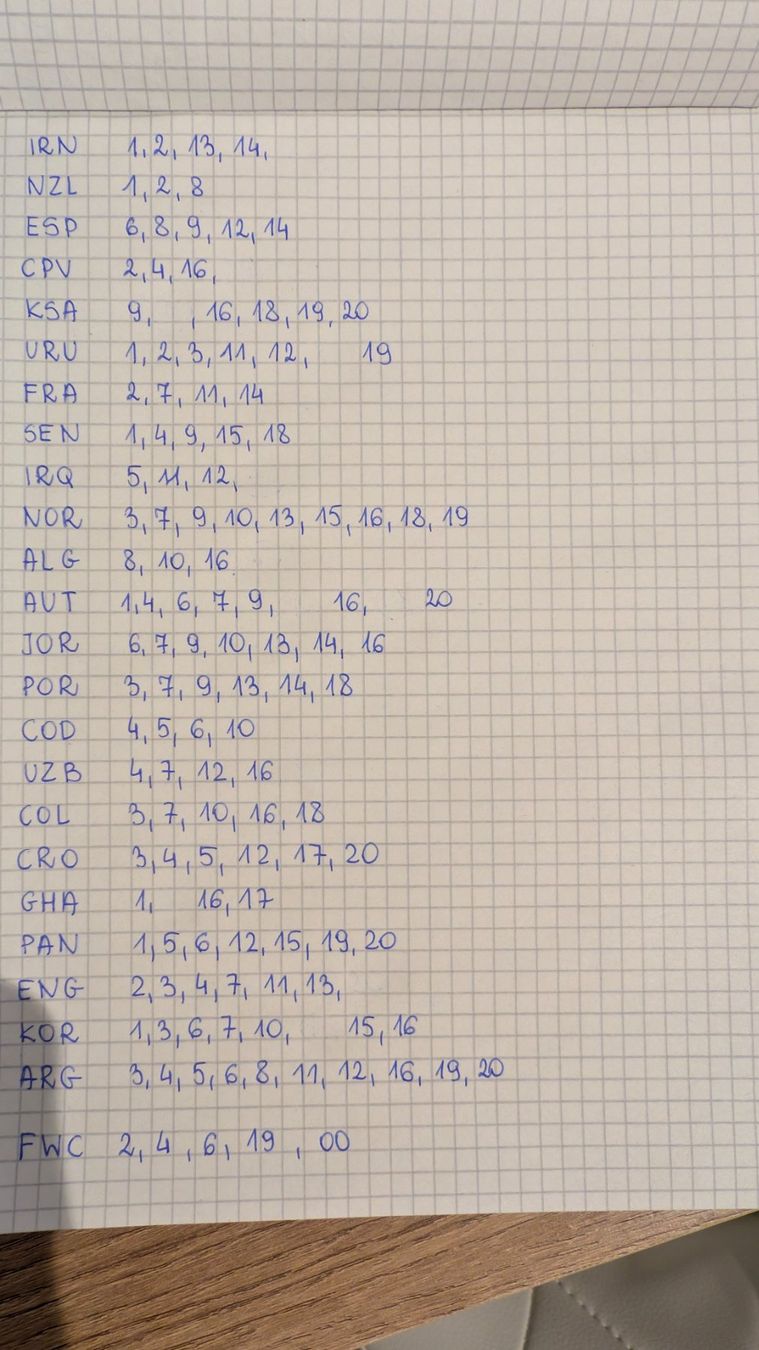 IRN 1, 2, 13, 14,
NZL 1, 2, 8
ESP 6, 8, 9, 12, 14
CPV 2, 4, 16,
KSA 9, , 16, 18, 19, 20
URU 1, 2, 3, 11, 12, 19
FRA 2, 7, 11, 14
SEN 1, 4, 9, 15, 18
IRQ 5, 11, 12,
NOR 3, 7, 9, 10, 13, 15, 16, 18, 19
ALG 8, 10, 16
AUT 1, 4, 6, 7, 9, 16, 20
JOR 6, 7, 9, 10, 13, 14, 16
POR 3, 7, 9, 13, 14, 18
COD 4, 5, 6, 10
UZB 4, 7, 12, 16
COL 3, 7, 10, 16, 18
CRO 3, 4, 5, 12, 17, 20
GHA 1, 16, 17
PAN 1, 5, 6, 12, 15, 19, 20
ENG 2, 3, 4, 7, 11, 13,
KOR 1, 3, 6, 7, 10, 15, 16
ARG 3, 4, 5, 6, 8, 11, 12, 16, 19, 20
FWC 2, 4, 6, 19, 00